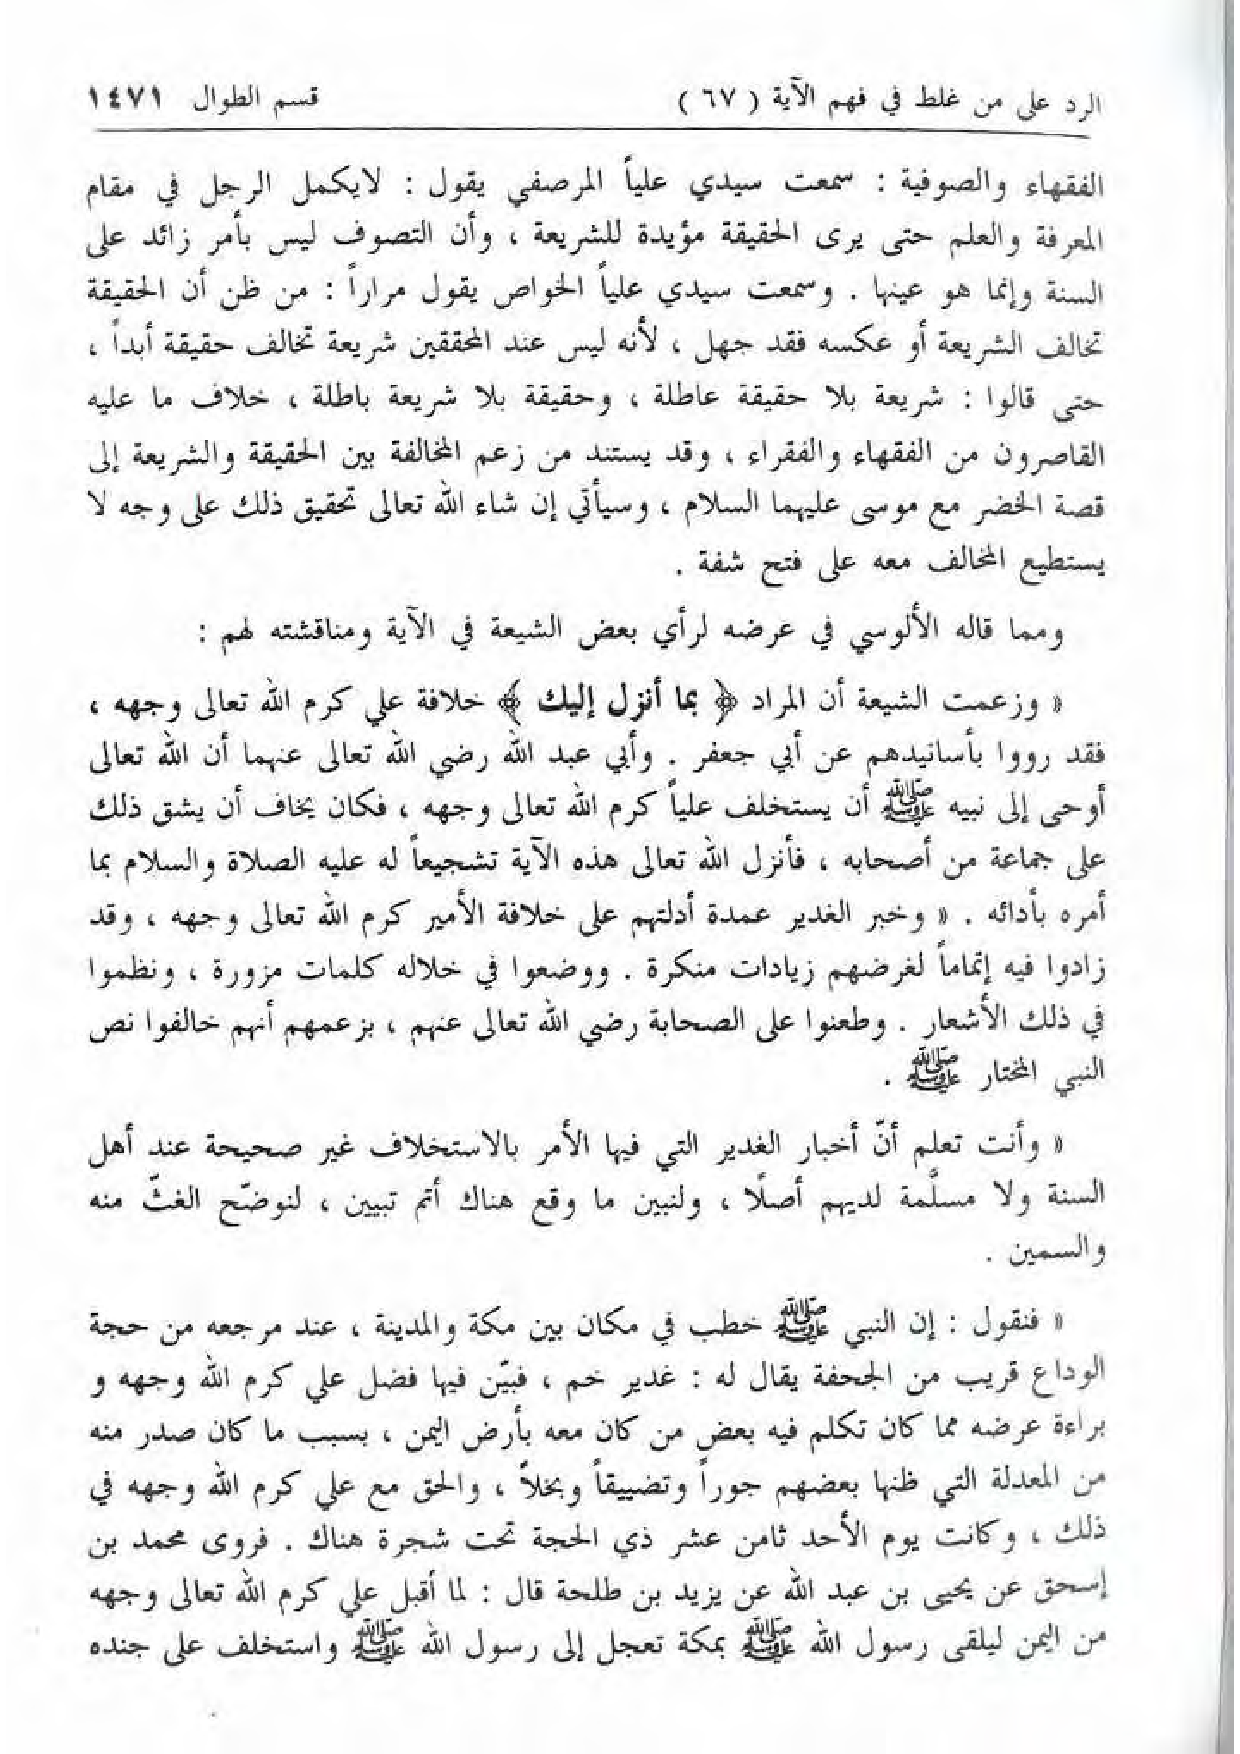 الرد على من غلط في فهم الآية ( ٦٧ ) قسم الطوال ١٤٧١
الفقهاء والصوفية : سمعت سيدي علياً المرصفي يقول : لايكمل الرجل في مقام
المعرفة والعلم حتى يرى الحقيقة مؤيدة للشريعة ، وأن التصوف ليس بأمر زائد على
السنة وإنما هو عينها . وسمعت سيدي علياً الخواص يقول مراراً : من ظن أن الحقيقة
تخالف الشريعة أو عكسه فقد جهل ، لأنه ليس عند المحققين شريعة تخالف حقيقة أبداً ،
حتى قالوا : شريعة بلا حقيقة عاطلة ، وحقيقة بلا شريعة باطلة ، خلاف ما عليه
القاصرون من الفقهاء والفقراء ، وقد يستند من زعم المخالفة بين الحقيقة والشريعة إلى
قصة الخضر مع موسى عليهما السلام ، وسيأتي إن شاء الله تعالى تحقيق ذلك على وجه لا
يستطيع المخالف معه على فتح شفة .
ومما قاله الألوسي في عرضه لرأي بعض الشيعة في الآية ومناقشته لهم :
« وزعمت الشيعة أن المراد ﴿ بما أنزل إليك ﴾ خلافة علي كرم الله تعالى وجهه ،
فقد رووا بأسانيدهم عن أبي جعفر . وأبي عبد الله رضي الله تعالى عنهما أن الله تعالى
أوحى إلى نبيه ﷺ أن يستخلف علياً كرم الله تعالى وجهه ، فكان يخاف أن يشق ذلك
على جماعة من أصحابه ، فأنزل الله تعالى هذه الآية تشجيعاً له عليه الصلاة والسلام بما
أمره بأدائه . « وخبر الغدير عمدة أدلتهم على خلافة الأمير كرم الله تعالى وجهه ، وقد
زادوا فيه إتماماً لغرضهم زيادات منكرة . ووضعوا في خلاله كلمات مزورة ، ونظموا
في ذلك الأشعار . وطعنوا على الصحابة رضي الله تعالى عنهم ، بزعمهم أنهم خالفوا نص
النبي المختار ﷺ .
« وأنت تعلم أنّ أخبار الغدير التي فيها الأمر بالاستخلاف غير صحيحة عند أهل
السنة ولا مسلَّمة لديهم أصلًا ، ولنبين ما وقع هناك أتم تبيين ، لنوضّح الغثّ منه
والسمين .
« فنقول : إن النبي ﷺ خطب في مكان بين مكة والمدينة ، عند مرجعه من حجة
الوداع قريب من الجحفة يقال له : غدير خم ، فبيّن فيها فضل علي كرم الله وجهه و
براءة عرضه مما كان تكلم فيه بعض من كان معه بأرض اليمن ، بسبب ما كان صدر منه
من المعدلة التي ظنها بعضهم جوراً وتضييقاً وبخلاً ، والحق مع علي كرم الله وجهه في
ذلك ، وكانت يوم الأحد ثامن عشر ذي الحجة تحت شجرة هناك . فروى محمد بن
إسحق عن يحيى بن عبد الله عن يزيد بن طلحة قال : لما أقبل علي كرم الله تعالى وجهه
من اليمن ليلقى رسول الله ﷺ بمكة تعجل إلى رسول الله ﷺ واستخلف على جنده